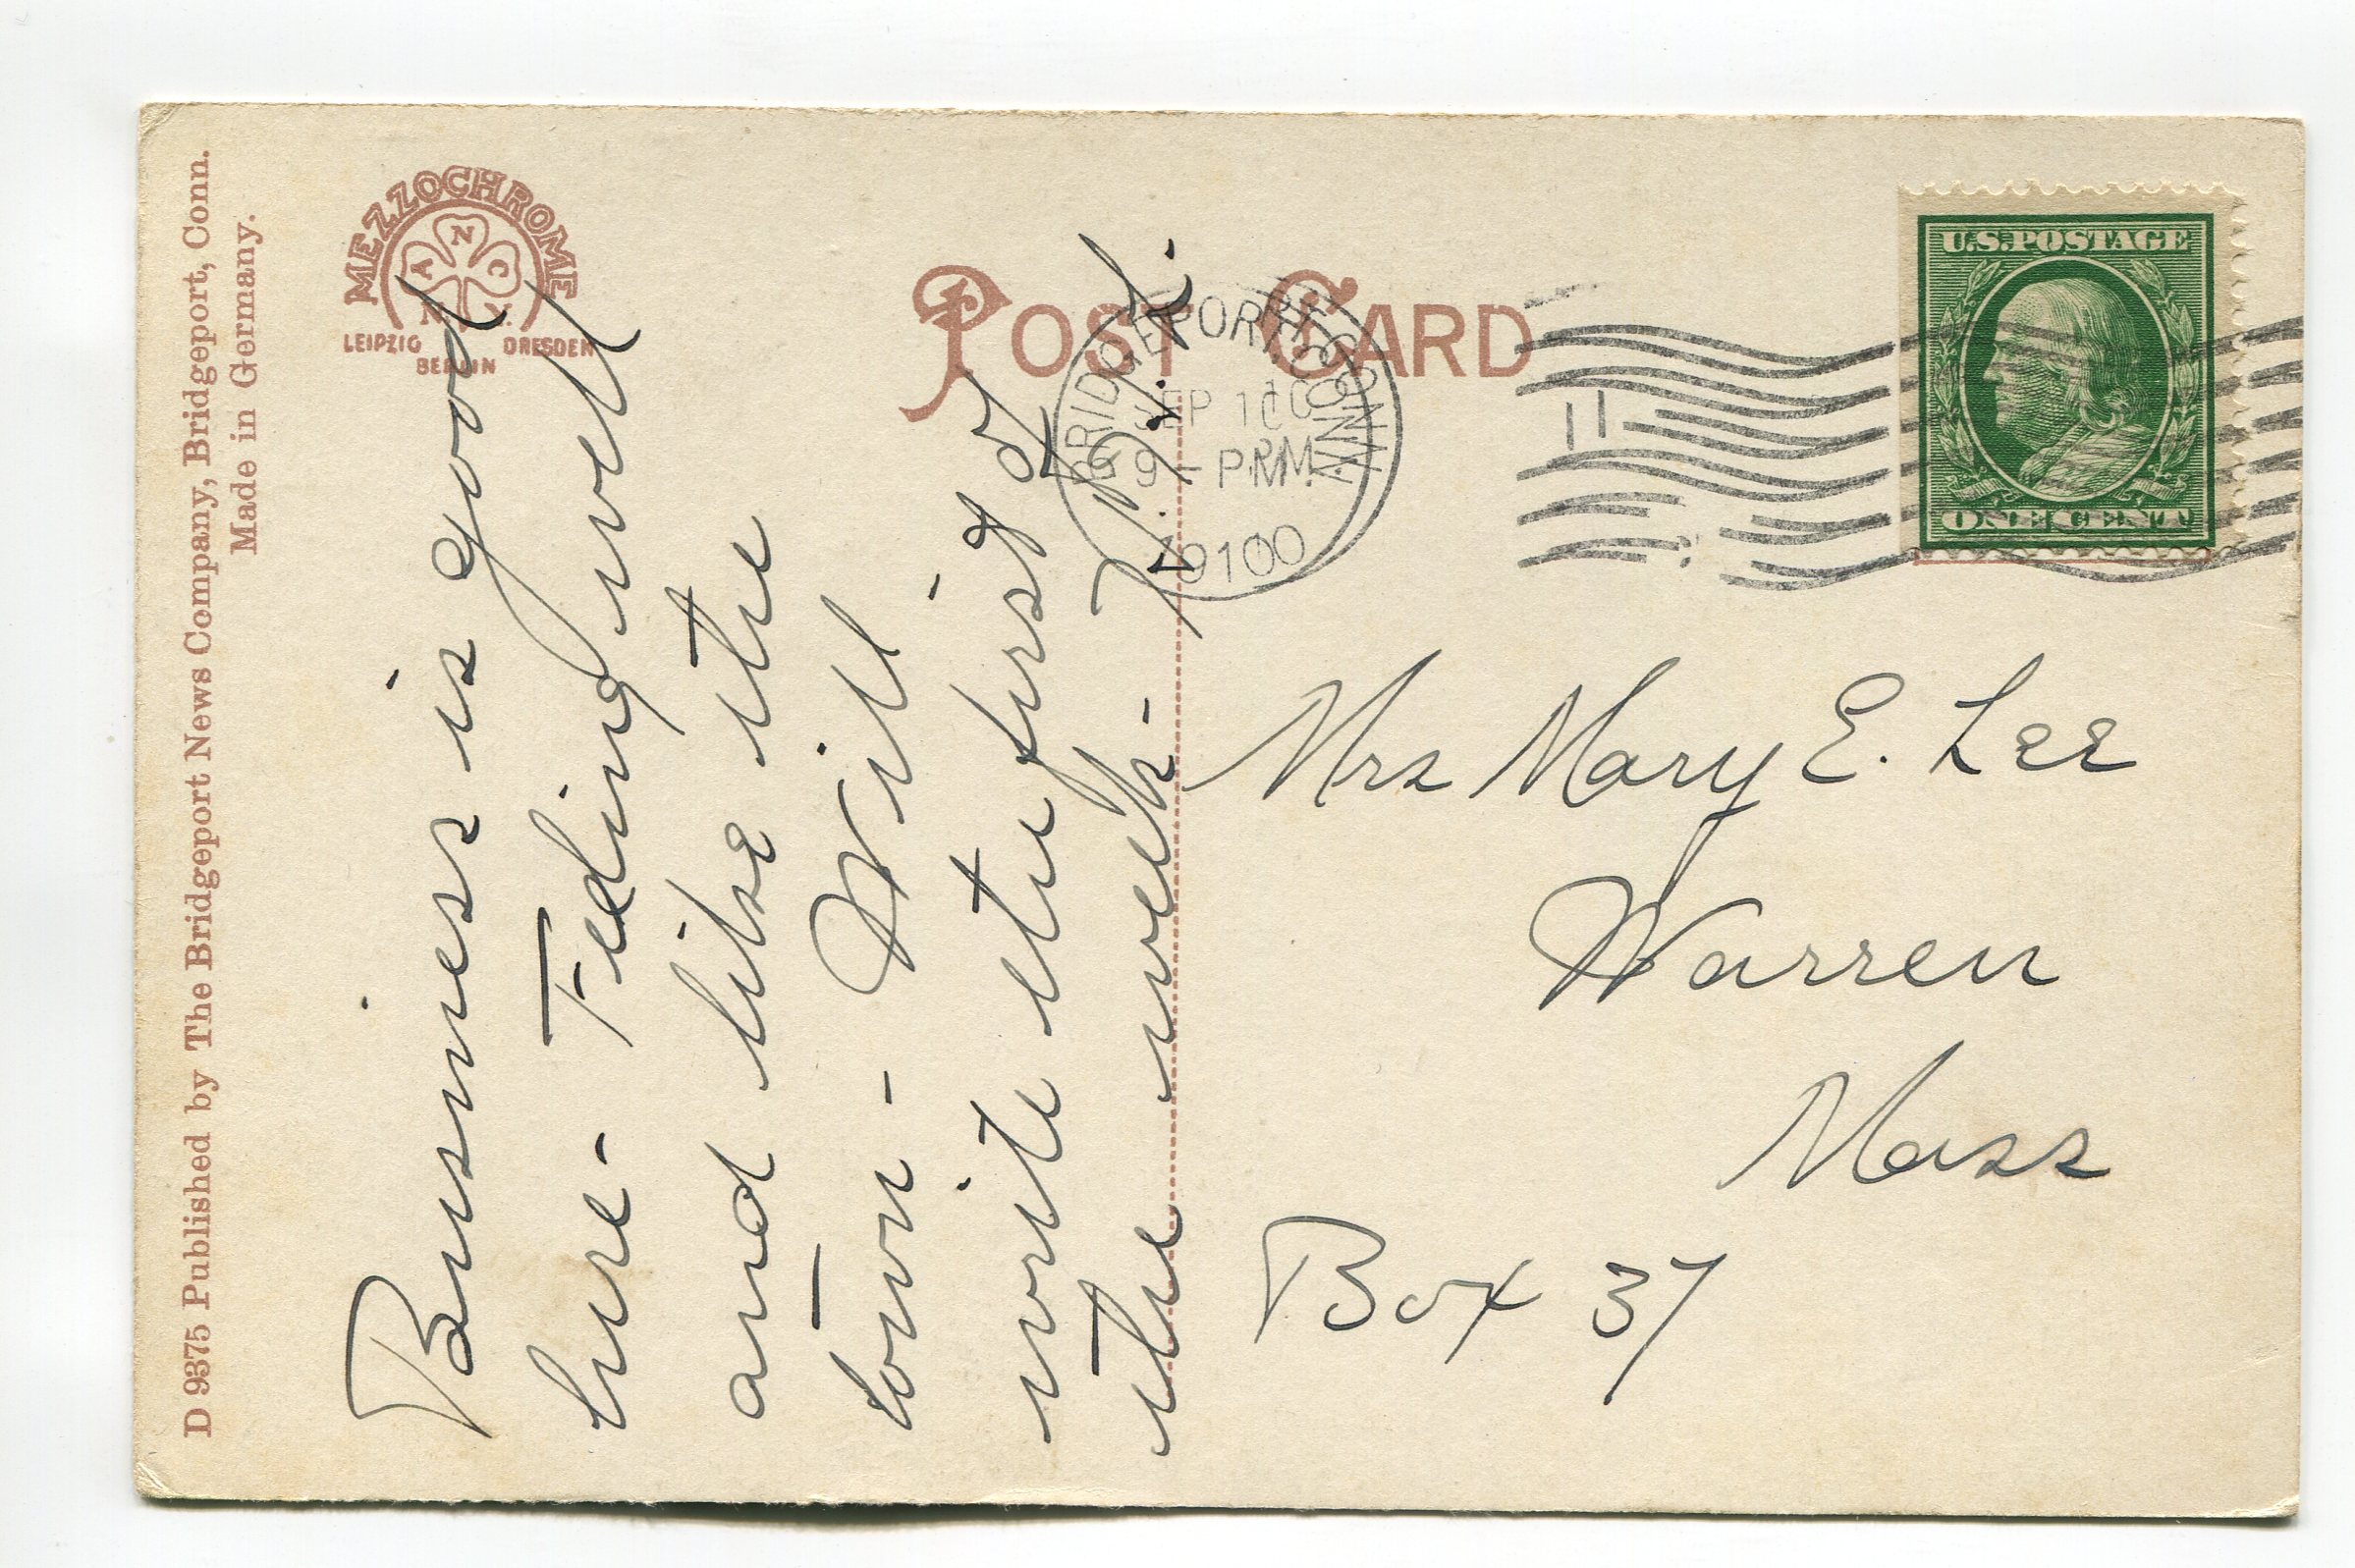 D 9375 Published by The Bridgeport News Company, Bridgeport, Conn.
Made in Germany.
MEZZOCHROME
A N C
N. Y.
LEIPZIG
BERLIN
DRESDEN
POST CARD
BRIDGEPORT, CONN.
SEP 10
9 - PM
1910
U.S. POSTAGE
ONE CENT
Business is good
here - Feeling well
and like the
town - Will
write the first of
the week -
Mrs Mary E. Lee
Warren
Mass
Box 37